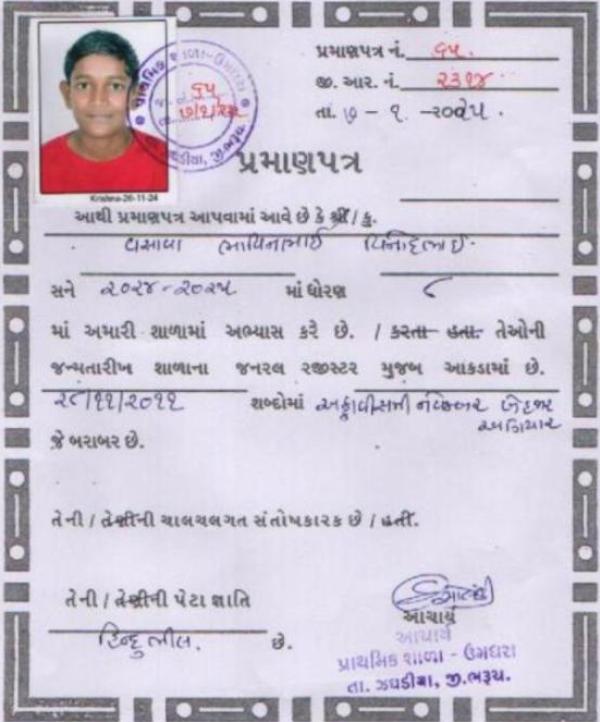 પ્રમાણપત્ર નં. ૬૫.
જી. આર. નં. ૨૩૧૪
તા. ૭ - ૧ - ૨૦૨૫.
પ્રાથમિક શાળા - ઉમધરા
૬૫
૭/૧/૨૫
ઝઘડીયા, જી.ભરૂચ.
Krishna-26-11-24
પ્રમાણપત્ર
આથી પ્રમાણપત્ર આપવામાં આવે છે કે શ્રી / કુ.
વસાવા ભાવિનભાઈ વિનોદભાઈ.
સને ૨૦૨૪-૨૦૨૫ માં ધોરણ ૮
માં અમારી શાળામાં અભ્યાસ કરે છે. / કરતા હતા. તેઓની
જન્મતારીખ શાળાના જનરલ રજીસ્ટર મુજબ આંકડામાં છે.
૨૮/૧૧/૨૦૧૧ શબ્દોમાં અઠ્ઠાવીસમી નવેમ્બર બેહજાર
અગિયાર
જે બરાબર છે.
તેની / તેણીની ચાલચલગત સંતોષકારક છે / હતી.
તેની / તેણીની પેટા જ્ઞાતિ
હિન્દુ ભીલ. છે.
આચાર્ય
આચાર્ય
પ્રાથમિક શાળા - ઉમધરા
તા. ઝઘડીયા, જી.ભરૂચ.